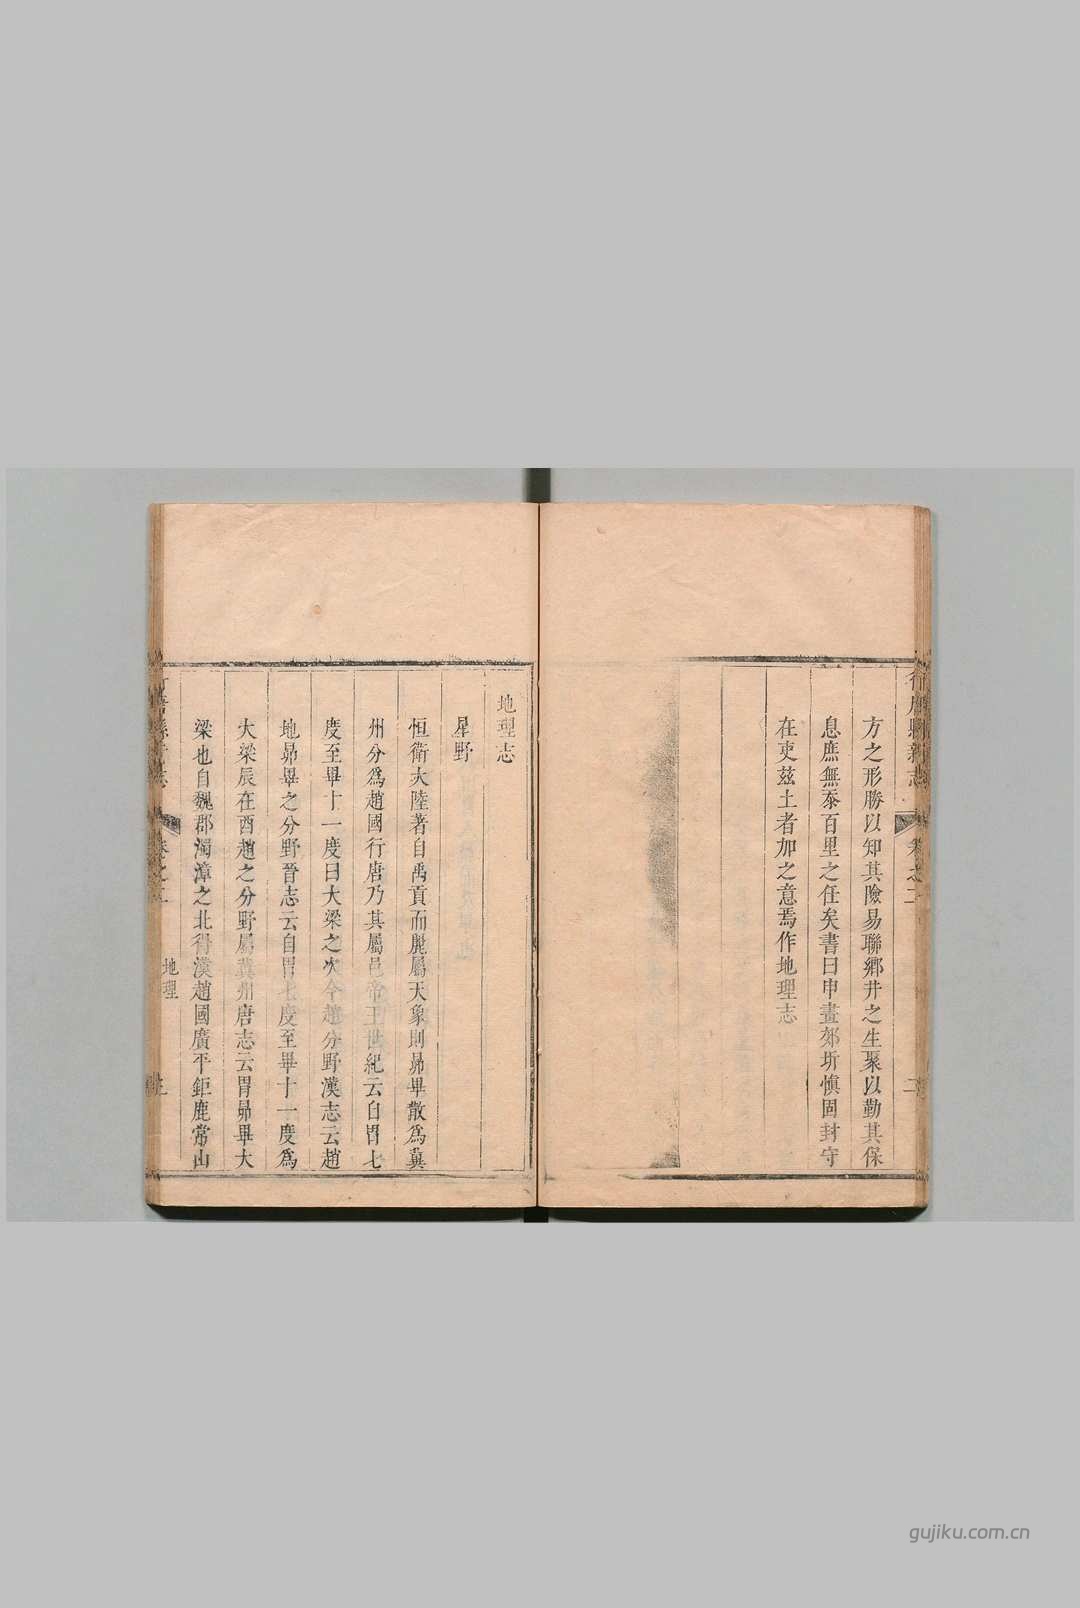 行唐縣新志 卷之二 二
方之形勝以知其險易聯鄉井之生聚以勤其保
息庶無忝百里之任矣書曰申畫郊圻愼固封守
在吏茲土者加之意焉作地理志
地理志
星野
恒衛大陸著自禹貢而麗屬天象則昴畢散為冀
州分為趙國行唐乃其屬邑帝王世紀云自胃七
度至畢十一度曰大梁之次今趙分野漢志云趙
地昴畢之分野晉志云自胃七度至畢十一度為
大梁辰在酉趙之分野屬冀州唐志云胃昴畢大
梁也自魏郡濁漳之北得漢趙國廣平鉅鹿常山
地理
gujiku.com.cn